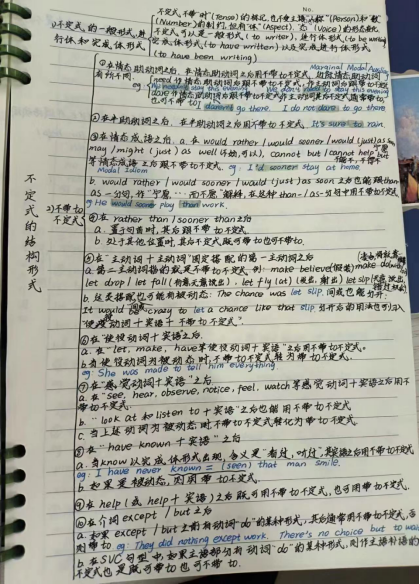 不定式的结构形式
1)不定式的一般形式、进行体和完成体形式
不定式不带"时"(Tense)的标记,也不受主语"人称"(Person)和"数"
(Number)的制约,但有"体"(Aspect)、"态"(Voice)的形态变化
不定式可以是一般形式(to write),进行体形式(to be writing)
完成体形式(to have written)以及完成进行体形式
(to have been writing)
2)不带to不定式
①在情态助动词之后
Marginal Modal
go there. I do not dare to go there
②在半助动词之后,在半助动词之后用不带to不定式. It's sure to rain.
③在情态成语之后, a. 在would rather / would sooner / would (just) as soon
may / might (just) as well, cannot but / cannot help but
等情态成语之后跟不带to不定式. eg: I'd sooner stay at home.
Modal Idiom
b. would rather / would sooner / would (just) as soon 之后也能跟than
as-分句,作"宁愿…而不愿"解释,在这种than-/as-分句中用不带to不定式
eg He would sooner play than work.
④在rather than / sooner than之后
a. 置于句首时,其后跟不带to不定式.
b. 处于其他位置时,其后不定式既可带to也可不带to.
⑤在"主动词+主动词"固定搭配的第一主动词之后
a. 第一主动词搭的就是不带to不定式.例: make believe(假装) make do
let drop / let fall, let fly (at), let slip
b. 这类搭配也可能有被动态: The chance was let slip. 间或也能分开:
It would crazy to let a chance like that slip.
"使役动词+宾语+不带to不定式".
⑥在"使役动词+宾语"之后.
a. 在"let, make, have等使役动词+宾语"之后用不带to不定式.
b. 当使役动词为被动态时,不带to不定式转为带to不定式.
eg: She was made to tell him everything.
⑦在"感觉动词+宾语"之后
a. 在"see, hear, observe, notice, feel, watch等感觉动词+宾语之后用不
带to不定式.
b. "look at和listen to+宾语"之后也能用不带to不定式.
c. 当上述动词为被动态时不带to不定式转化为带to不定式
⑧在"have known + 宾语"之后
a. 当know以完成体形式出现,含义是"看过,听过",其宾语之后用不带to不定式
eg: I have never known = (seen) that man smile.
b. 如果是被动态,则用带to不定式.
⑨在help(或help+宾语)之后既可用不带to不定式,也可用带to不定式.
⑩在介词except / but之后
a. 如果except / but之前有动词"do"的某种形式,其后通常用不带to不定式,否
则带to eg: They did nothing except work. There's no choice but to wait
b. 在SVC句型中,如果主语部分有动词"do"的某种形式,则作主语补语的
不定式也是既可带to也可不带to.